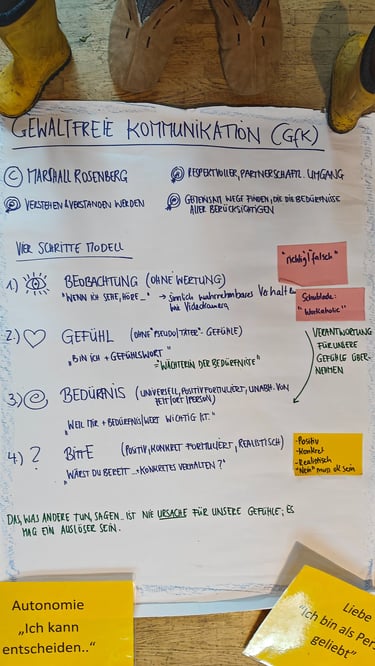 GEWALTFREIE KOMMUNIKATION (GfK)
© MARSHALL ROSENBERG
RESPEKTVOLLER, PARTNERSCHAFTL. UMGANG
VERSTEHEN & VERSTANDEN WERDEN
GEMEINSAM WEGE FINDEN, DIE DIE BEDÜRFNISSE
ALLER BERÜCKSICHTIGEN
VIER SCHRITTE MODELL
"richtig" "falsch"
1.) BEOBACHTUNG (OHNE WERTUNG)
"WENN ICH SEHE, HÖRE_" → sinnlich wahrnehmbares Verhalten
wie Videokamera
Schublade:
"Workaholic"
2.) GEFÜHL (OHNE "PSEUDO/TÄTER"-GEFÜHLE)
"BIN ICH + GEFÜHLSWORT"
="WÄCHTERIN DER BEDÜRFNISSE"
VERANTWORTUNG
FÜR UNSERE
GEFÜHLE ÜBER-
NEHMEN
3.) BEDÜRFNIS (UNIVERSELL, POSITIV FORMULIERT, UNABH. VON
ZEIT/ORT/PERSON)
"WEIL MIR + BEDÜRFNIS/WERT WICHTIG IST."
4.) ? BITTE (POSITIV, KONKRET FORMULIERT, REALISTISCH)
"WÄRST DU BEREIT _ +KONKRETES VERHALTEN?"
-Positiv
-Konkret
-Realistisch
-"Nein" muss ok sein
DAS, WAS ANDERE TUN, SAGEN_ IST NIE URSACHE FÜR UNSERE GEFÜHLE; ES
MAG EIN AUSLÖSER SEIN.
Autonomie
„Ich kann
entscheiden..“
Liebe
"Ich bin als Per
geliebt"